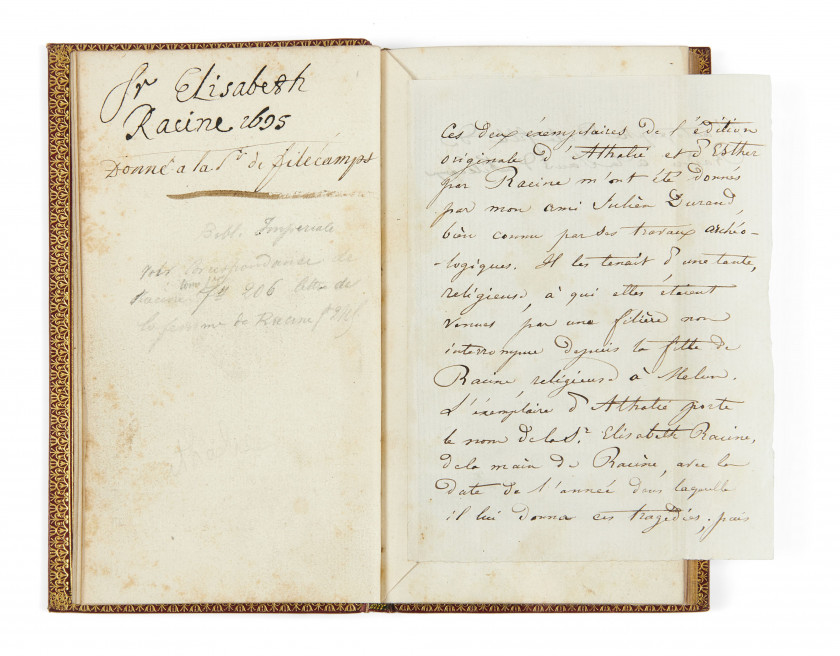 Sr Elisabeth
Racine 1695
Donné a la Sr de filécamps
Bibl. Imperiale
Voir Correspondance de
Racine fr 206 lettre de
la femme de Racine
Ces deux éxemplaires de l'édition
originale d'Athalie et d'Esther
par Racine m'ont été donnés
par mon ami Julien Durand,
bien connu par ses travaux archéo-
-logiques. Il les tenait d'une tante,
religieuse, à qui elles étaient
venues par une filière non
interrompue depuis la fille de
Racine religieuse à Melun.
L'éxémplaire d'Athalie porte
le nom de la Sr Elisabeth Racine,
de la main de Racine, avec la
date de l'année dans laquelle
il lui donna ces tragédies, puis